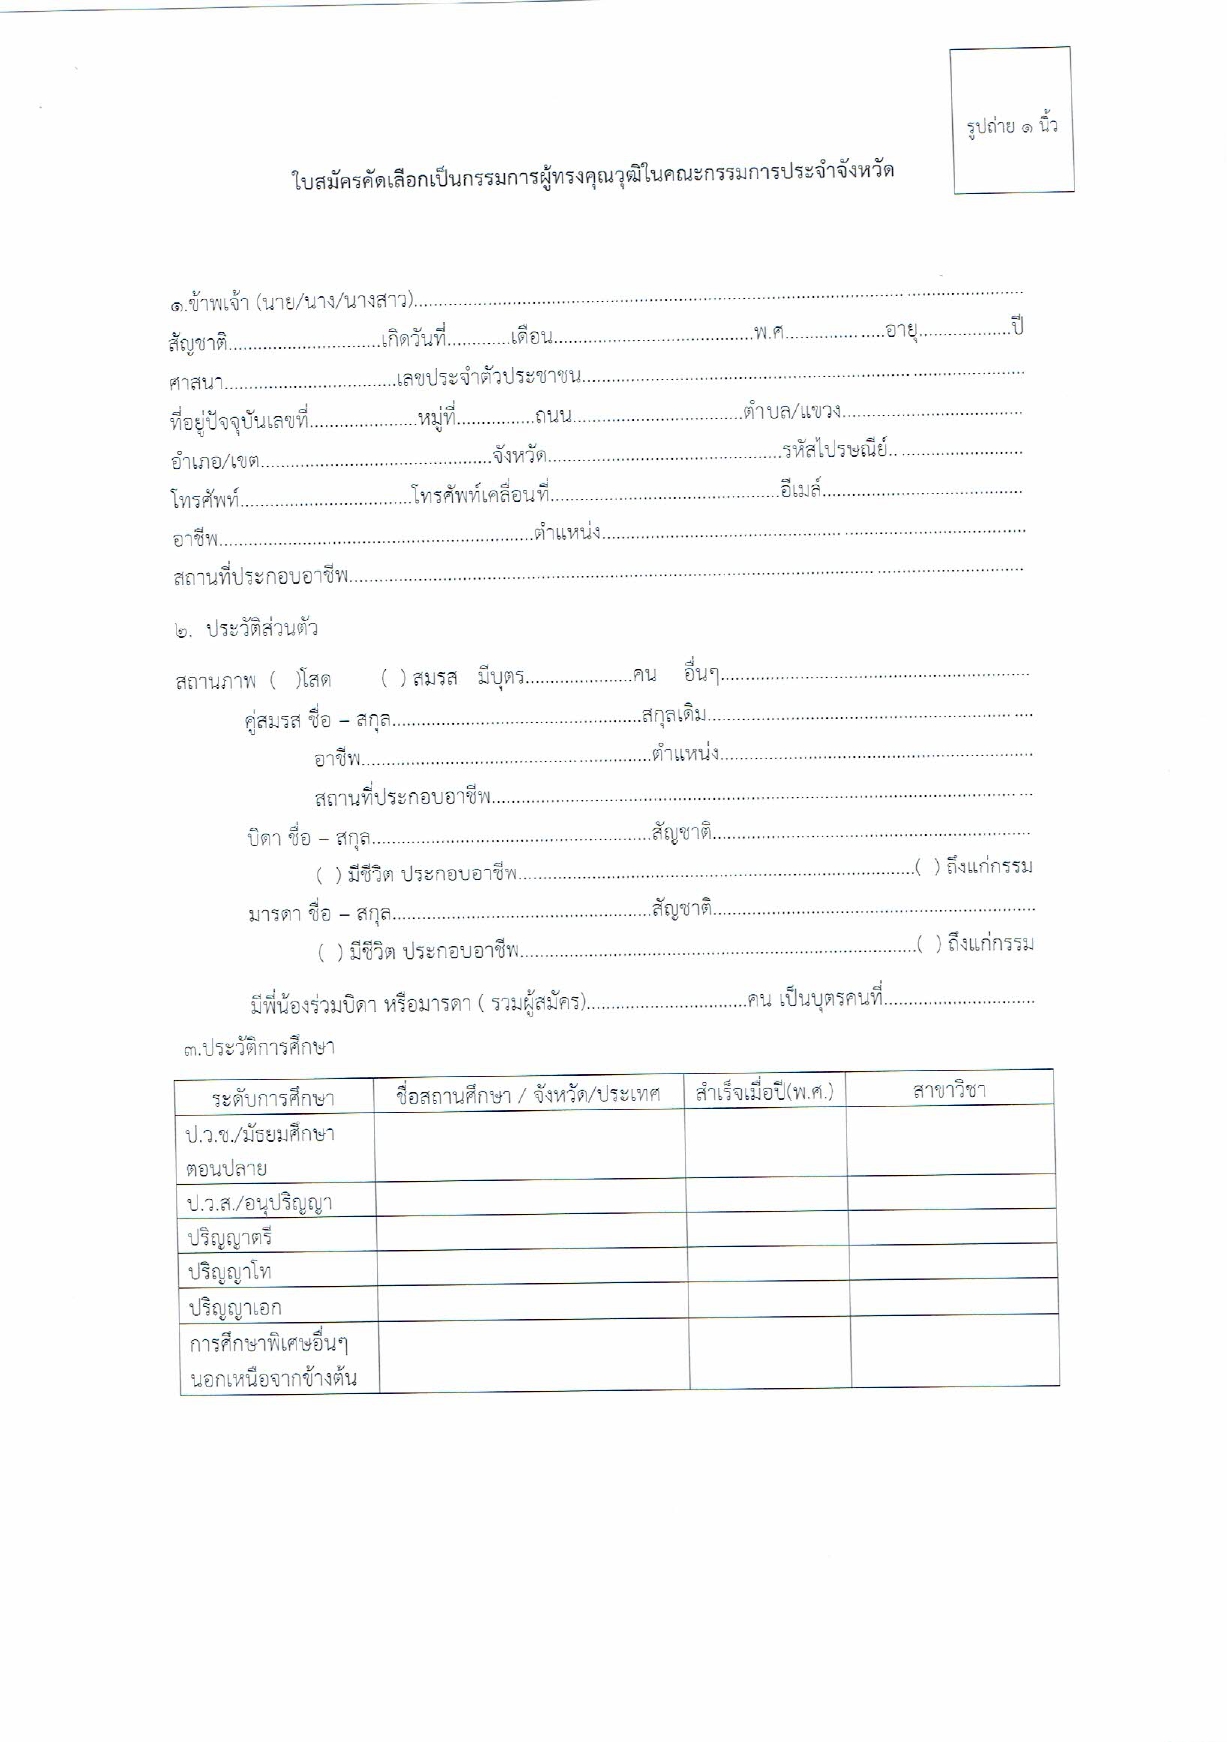 รูปถ่าย ๑ นิ้ว
ใบสมัครคัดเลือกเป็นกรรมการผู้ทรงคุณวุฒิในคณะกรรมการประจำจังหวัด
๑.ข้าพเจ้า (นาย/นาง/นางสาว)..........................................................................................
สัญชาติ...............................เกิดวันที่.............เดือน.........................................พ.ศ.....................อายุ...................ปี
ศาสนา...................................เลขประจำตัวประชาชน..........................................................................................
ที่อยู่ปัจจุบันเลขที่......................หมู่ที่................ถนน...................................ตำบล/แขวง.....................................
อำเภอ/เขต...............................................จังหวัด................................................รหัสไปรษณีย์...........................
โทรศัพท์...................................โทรศัพท์เคลื่อนที่...............................................อีเมล์.........................................
อาชีพ................................................................ตำแหน่ง.......................................................................................
สถานที่ประกอบอาชีพ..........................................................................................
๒. ประวัติส่วนตัว
สถานภาพ ( )โสด ( ) สมรส มีบุตร......................คน อื่นๆ...............................................................
คู่สมรส ชื่อ – สกุล...................................................สกุลเดิม...................................................................
อาชีพ...........................................................ตำแหน่ง................................................................
สถานที่ประกอบอาชีพ..........................................................................................
บิดา ชื่อ – สกุล.........................................................สัญชาติ.................................................................
( ) มีชีวิต ประกอบอาชีพ.................................................................................( ) ถึงแก่กรรม
มารดา ชื่อ – สกุล.....................................................สัญชาติ..................................................................
( ) มีชีวิต ประกอบอาชีพ.................................................................................( ) ถึงแก่กรรม
มีพี่น้องร่วมบิดา หรือมารดา ( รวมผู้สมัคร).................................คน เป็นบุตรคนที่...............................
๓.ประวัติการศึกษา
ระดับการศึกษา ชื่อสถานศึกษา / จังหวัด/ประเทศ สำเร็จเมื่อปี(พ.ศ.) สาขาวิชา
ป.ว.ช./มัธยมศึกษา
ตอนปลาย
ป.ว.ส./อนุปริญญา
ปริญญาตรี
ปริญญาโท
ปริญญาเอก
การศึกษาพิเศษอื่นๆ
นอกเหนือจากข้างต้น